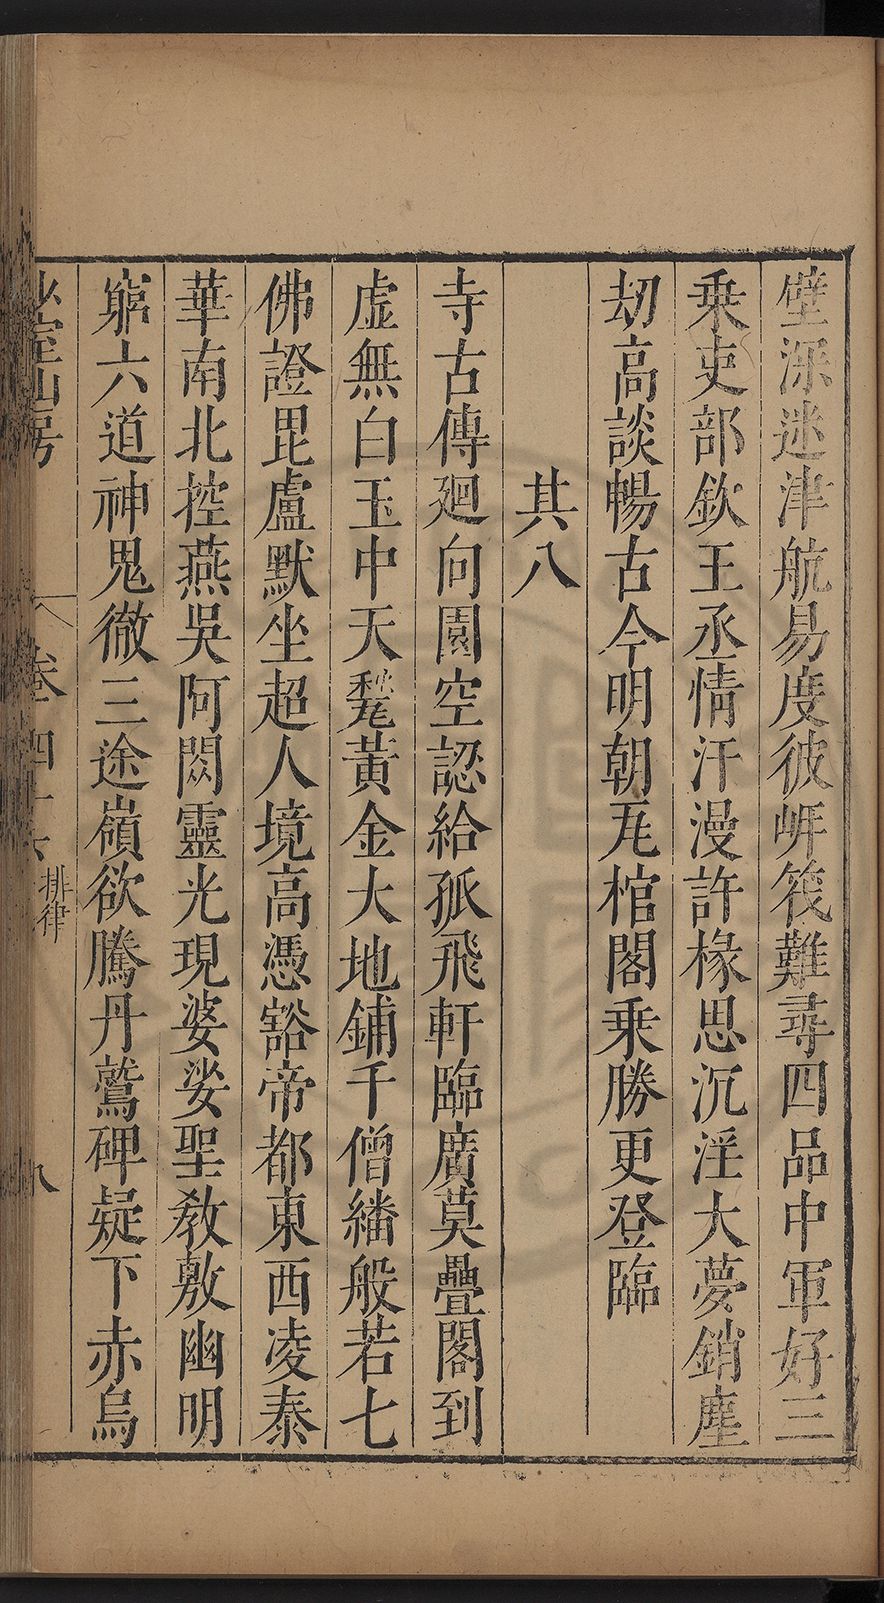 壁深迷津航易度彼岸筏難尋四品中軍好三
乘吏部欽王丞情汗漫許椽思沉淫大夢銷塵
劫高談暢古今明朝瓦棺閣乗勝更登臨
其八
寺古傳廻向園空認給孤飛軒臨廣莫疊閣到
虛無白玉中天甃黃金大地鋪千僧繙般若七
佛證毘盧默坐超人境高憑豁帝都東西凌泰
華南北控燕吳阿閦靈光現婆娑聖教敷幽明
窮六道神鬼徹三途嶺欲騰丹鷲碑疑下赤烏
少室山房 卷四十六 排律 八